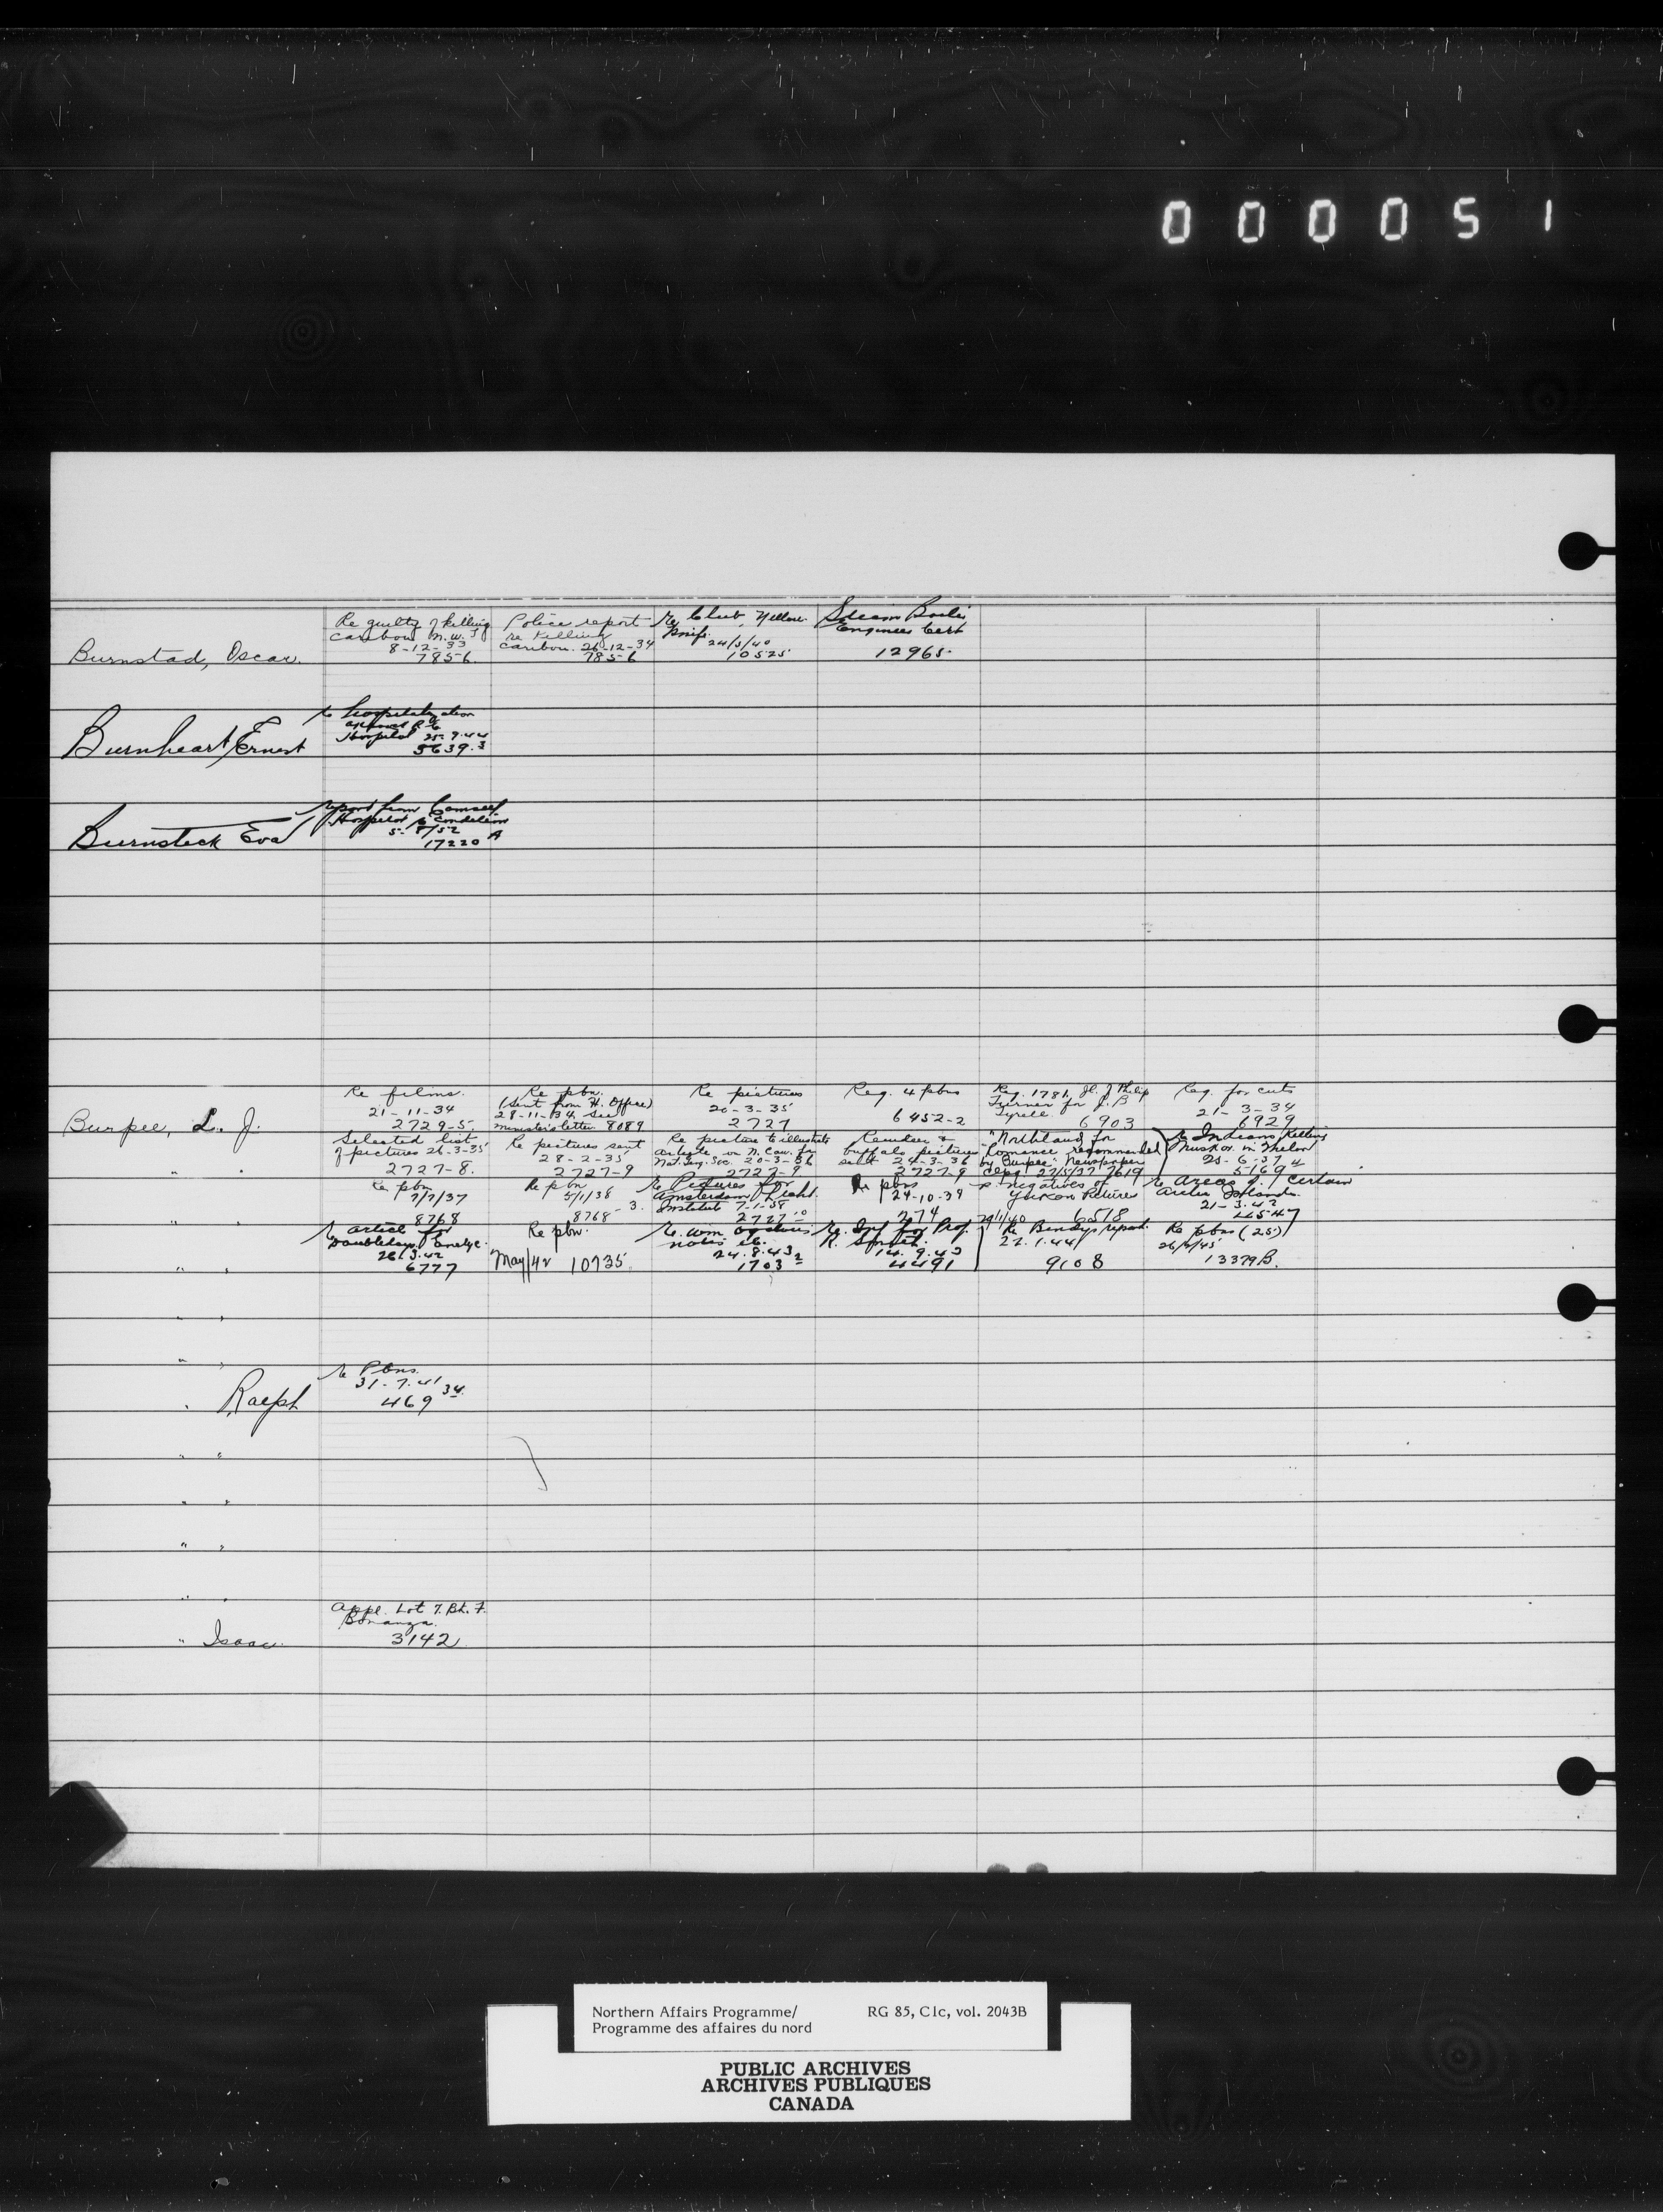 000051
Burnstad, Oscar.
Re guilty of killing
caribou N.W.T
8-12-33
7856.
Police report
re killing
caribou. 26-12-34
7856
Re Club, Yellow-
knife
24/5/40
10525
Steam Boiler
Engineer Cert
12965.
Burnheart Ernest
re hospitalization
Hospital 25.9.44
5639.3
Burnsteck Eva
report from Camsell
Hospital re condition
5-8/52
17220 A
Burpee, L. J.
Re films.
21-11-34
2729-5.
Re pbn.
(sent from H. Office)
28-11-34, See
minister's letter 8089
Re pictures
20-3-35
2727
Req. 4 pbns
6452-2
Req. 1781, Jl. J Philip
Turner for J. B
Tyrell.
6903
Req. for cuts
21-3-34
6929
" "
Selected list
of pictures 26-3-35
2727-8.
Re pictures sent
28-2-35
2727-9
Re picture to illustrate
article on N. Can. for
Nat. Geog. Soc. 20-3-36
2727-9
Reindeer &
buffalo pictures
sent 24-3-36
2727-9
"Northland for
Romance recommended
by Burpee". Newspaper
clpg. 27/5/37 7619
re Indians killing
Muskox in Thelon
25-6-37
5169 4
" "
Re pbn
7/7/37
8768
Re pbn
5/1/38
8768-3.
re Pictures for
Amsterdam
Institute 7-1-38
2727 10
Re pbns
24-10-39
274
re negatives of
Yukon Pictures
29/1/40 6518
re areas of certain
Arctic Islands.
21-3-42
4454 7
" "
re article for
Doubleday's Encyc.
26/3.42
6777
Re pbn.
May/42 10735
notes etc.
24.8.43
1703 2
re Inf for Prof.
R. Smith.
14.9.43
4491
Re Bendys report.
27.1.44
9108
Re pbns (25)
26/5/45
13379B.
" "
" "
" Ralph
re Pbns.
31-7.41
469 34.
" "
" "
" "
" "
" Isaac.
Appl. Lot 7. Bk. F.
Bonanza.
3142
Northern Affairs Programme/ RG 85, C1c, vol. 2043B
Programme des affaires du nord
PUBLIC ARCHIVES
ARCHIVES PUBLIQUES
CANADA